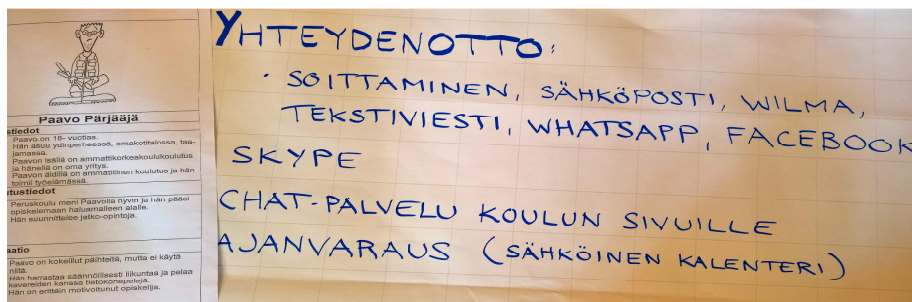 Paavo Pärjääjä
Paavo on 18- vuotias.
Hän asuu ydinperheessä, omakotitalossa, taa-
jamassa.
Paavon isällä on ammattikorkeakoulukoulutus
ja hänellä on oma yritys.
Paavon äidillä on ammatillinen koulutus ja hän
toimii työelämässä.
Peruskoulu meni Paavolla hyvin ja hän pääsi
opiskelemaan haluamalleen alalle.
Hän suunnittelee jatko-opintoja.
Paavo on kokeillut päihteitä, mutta ei käytä
niitä.
Hän harrastaa säännöllisesti liikuntaa ja pelaa
kavereiden kanssa tietokonepelejä.
Hän on erittäin motivoitunut opiskelija.
YHTEYDENOTTO:
• SOITTAMINEN, SÄHKÖPOSTI, WILMA,
TEKSTIVIESTI, WHATSAPP, FACEBOOK
SKYPE
CHAT-PALVELU KOULUN SIVUILLE
AJANVARAUS (SÄHKÖINEN KALENTERI)